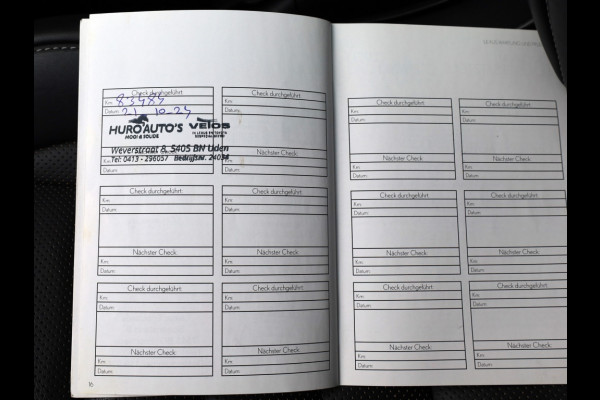 Check durchgeführt:
Km: 83484
Datum: 21-10-24
HURO AUTO'S VEIOS
MOOI & SOLIDE
Weverstraat 8, 5405 BN Uden
Tel: 0413 - 296057 Bedrijfsnr. 24034
Km:
Datum:
Check durchgeführt:
Km:
Datum:
Nächster Check:
Km:
Datum:
Check durchgeführt:
Km:
Datum:
Nächster Check:
Km:
Datum:
Check durchgeführt:
Km:
Datum:
Nächster Check:
Km:
Datum:
Check durchgeführt:
Km:
Datum:
Nächster Check:
Km:
Datum:
Check durchgeführt:
Km:
Datum:
Nächster Check:
Km:
Datum:
16
Check durchgeführt:
Km:
Datum:
Nächster Check:
Km:
Datum:
Check durchgeführt:
Km:
Datum:
Nächster Check:
Km:
Datum:
Check durchgeführt:
Km:
Datum:
Nächster Check:
Km:
Datum:
Check durchgeführt:
Km:
Datum:
Nächster Check:
Km:
Datum:
Check durchgeführt:
Km:
Datum:
Nächster Check:
Km:
Datum:
Check durchgeführt:
Km:
Datum:
Nächster Check:
Km:
Datum: